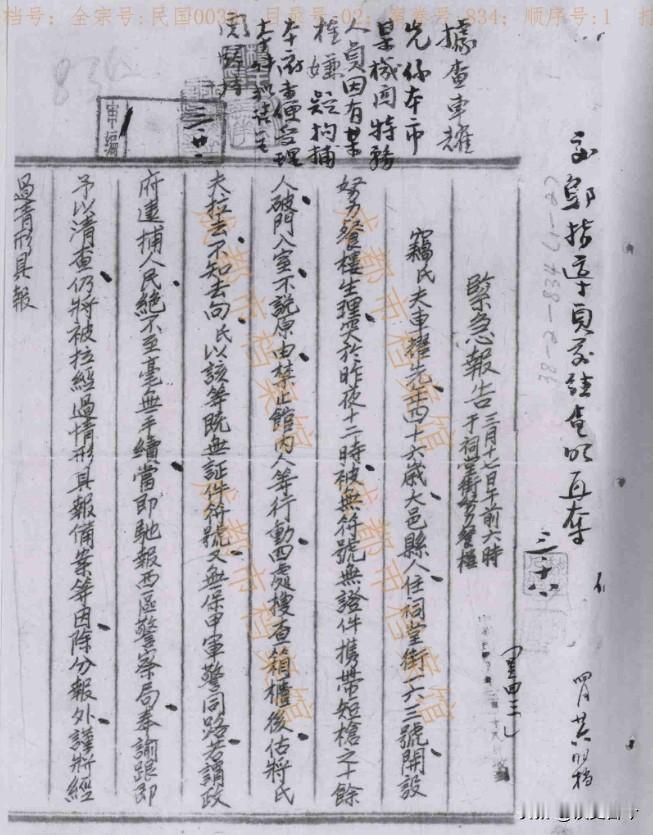 档号：全宗号:民国0038 目录号:02；案卷号 834；顺序号:1
緊急報告 三月十七日午前六時
于祠堂街努力餐樓
竊氏夫車耀先年四十六歲大邑縣人住祠堂街一六三號開設
努力餐樓生理突於昨夜十二時被無符號無證件携帶短槍之十餘
人破門入室不說原由禁止館內人等行動四處搜查箱櫃後估將氏
夫拉去不知去向氏以該等既無証件符號又無保甲軍警同路若謂政
府逮捕人民絕不至毫無手續當即馳報西區警察局奉諭跟即
予以清查仍將被拉經過情形具報備案等因除分報外謹將經
過情形具報
據查車耀
先係本市
某機関特務
人員因有某
種嫌疑拘捕
本府未便受理
三・十八
38-2-834(1-2)
836
成都市档案馆
成都市档案馆
成都市档案馆
成都市档案馆